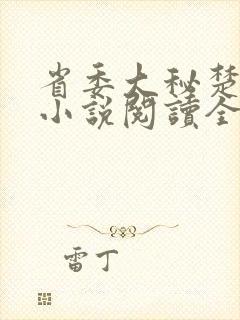 省委大秘楚
小說閱讀全
雷丁